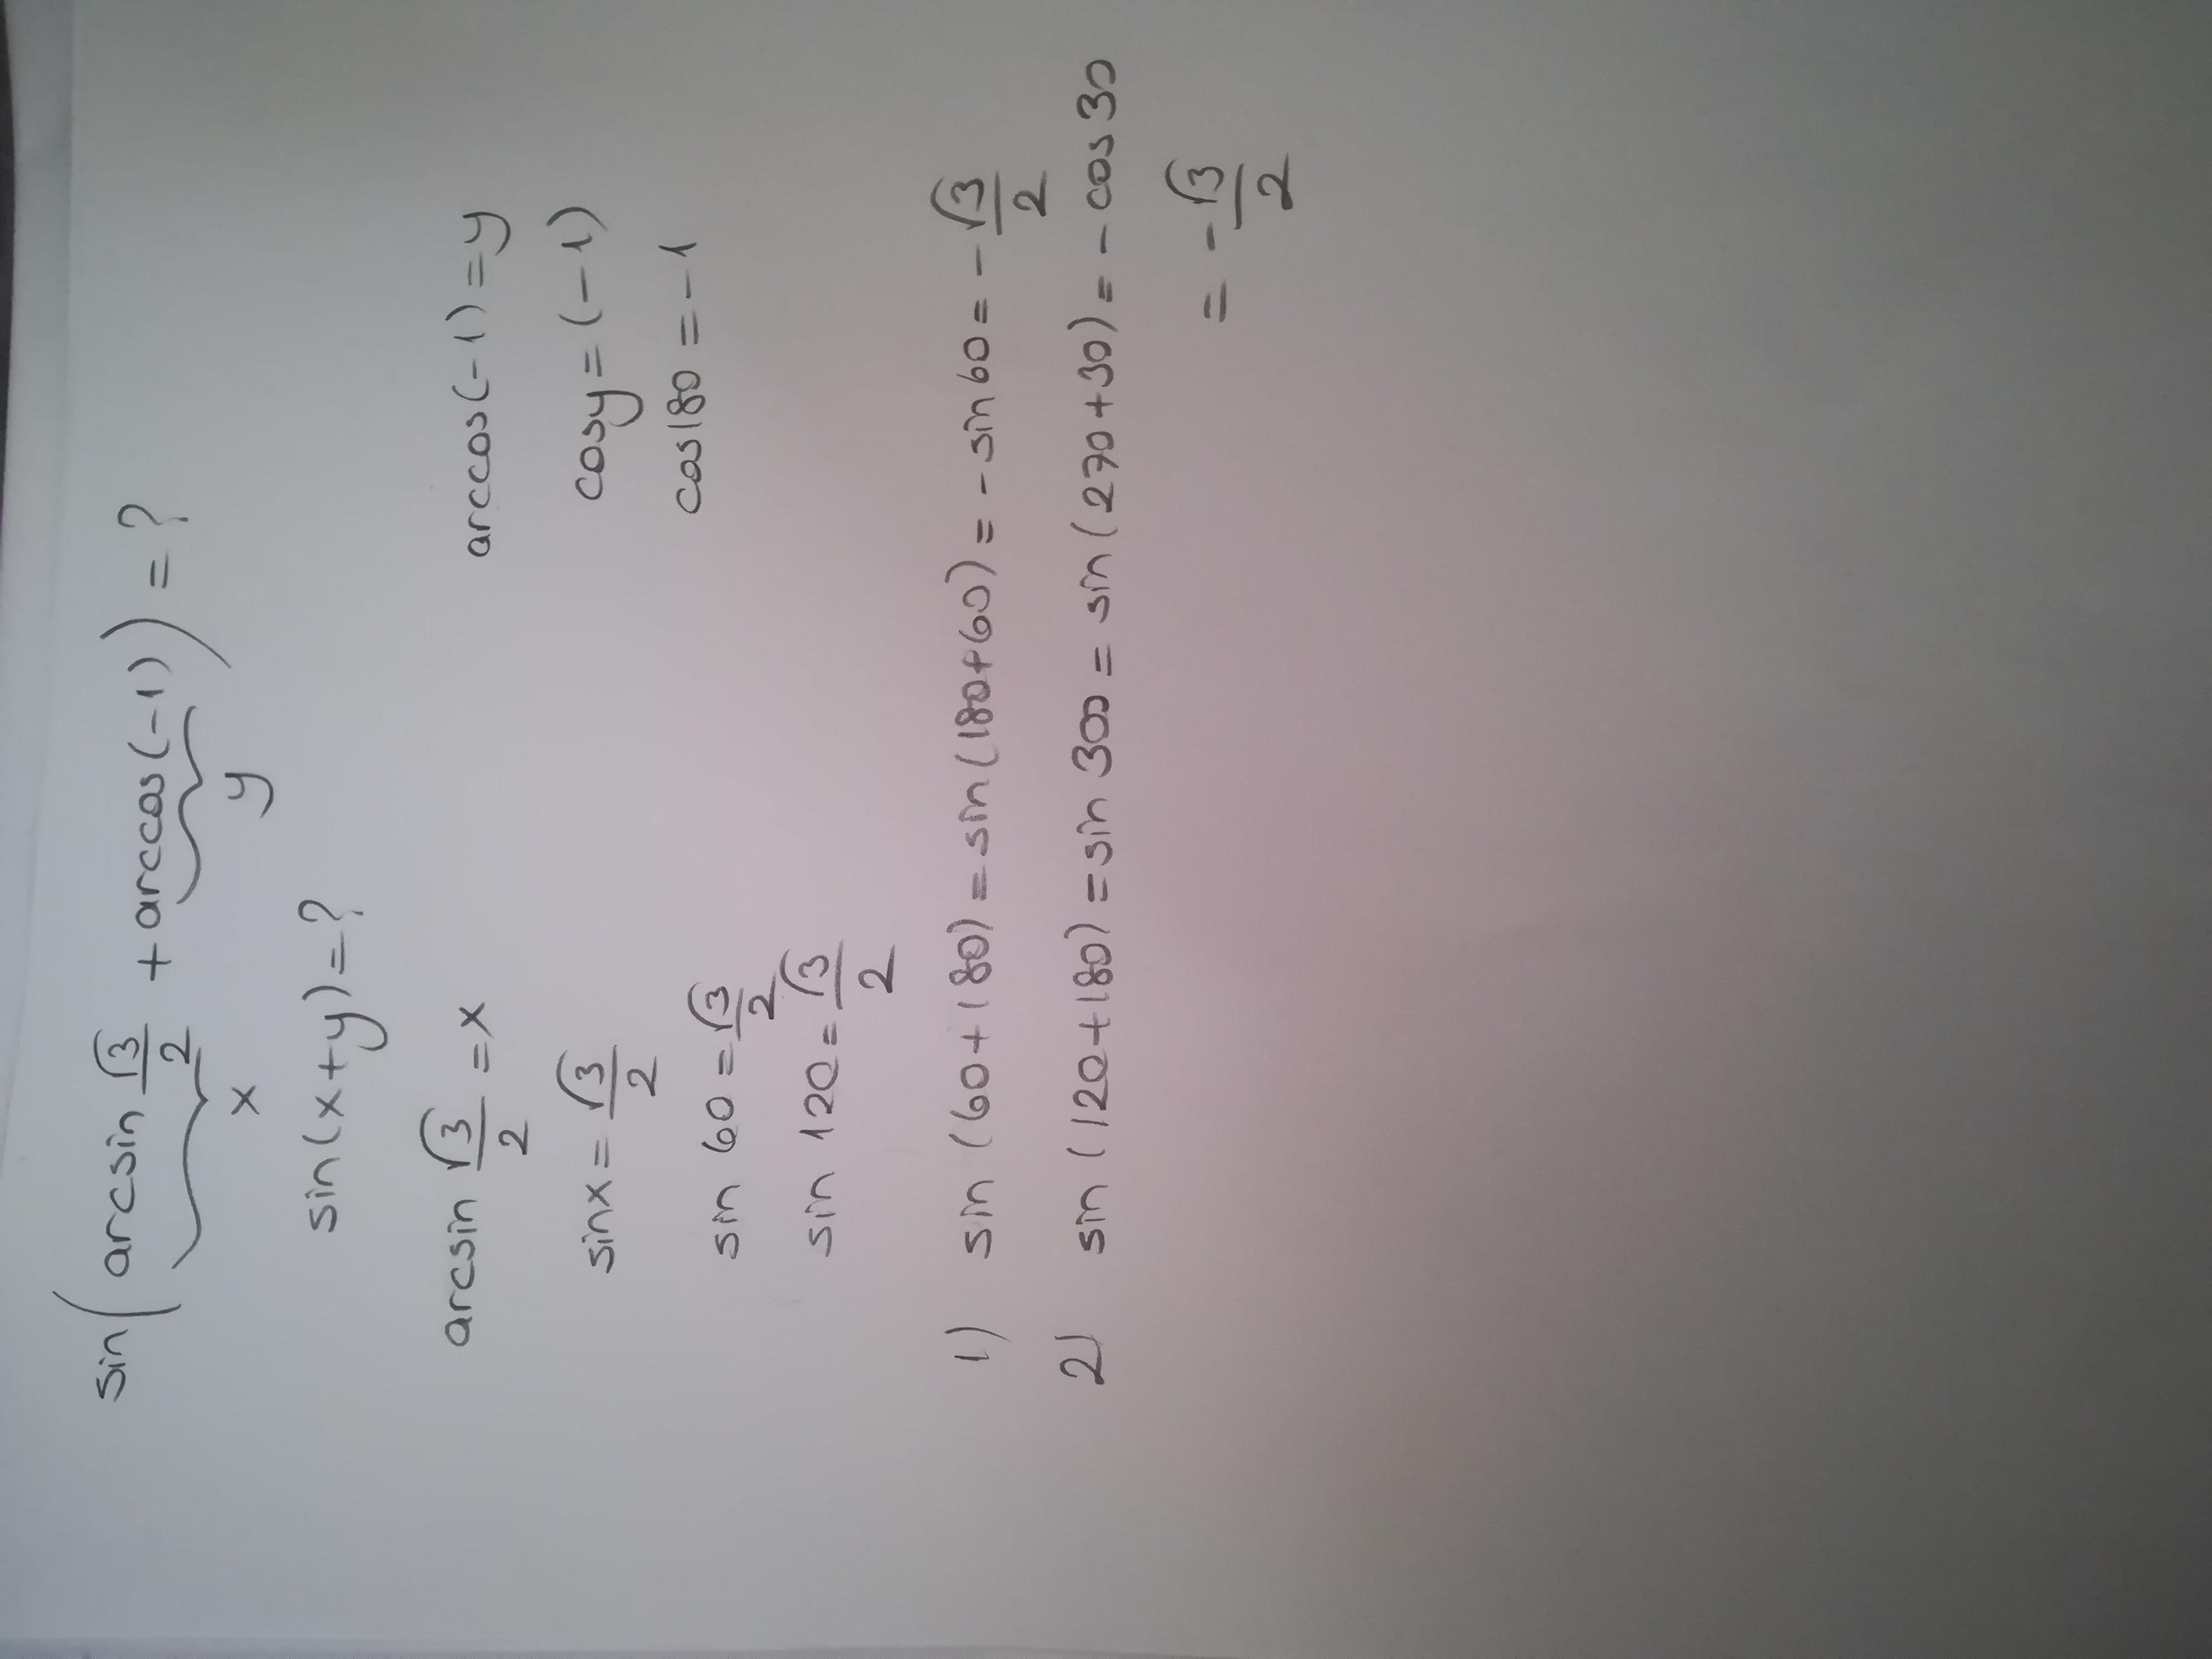 sin(arcsin √3/2 + arccos(-1)) = ?
x y
sin(x+y)=?
arcsin √3/2 = x arccos(-1) = y
sinx = √3/2 cosy = (-1)
sin 60 = √3/2 cos180 = -1
sin 120 = √3/2
1) sin (60+180) = sin(180+60) = - sin 60 = - √3/2
2) sin (120+180) = sin 300 = sin(270+30) = - cos 30
= - √3/2